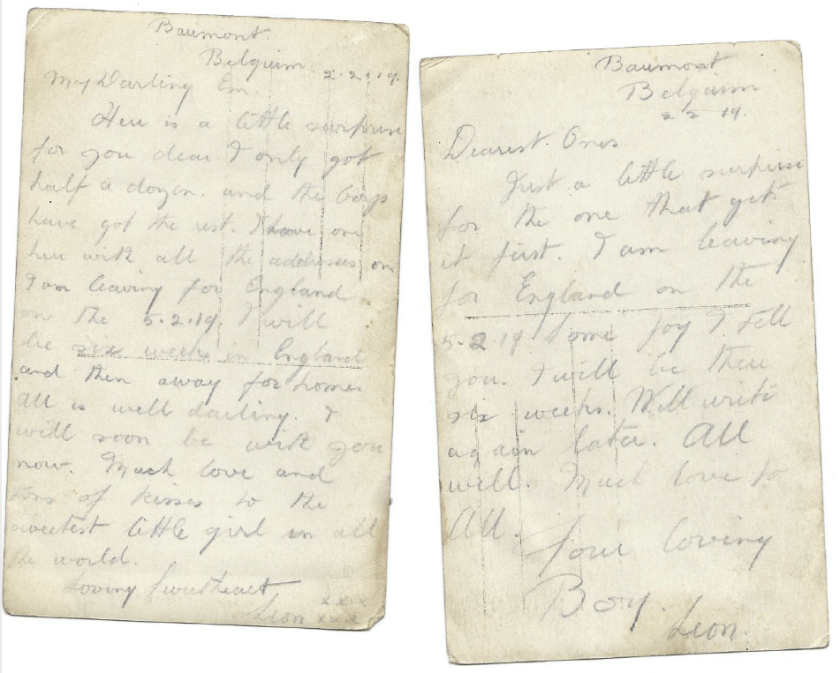 Baumont.
Belgium 2.2.19.
My Darling Em
Here is a little surprise
for you dear I only got
half a dozen. and the boys
have got the rest. I have one
here with all the addresses on
I am leaving for England
on the 5.2.19. I will
be six weeks in England
and then away for home.
All is well darling. I
will soon be with you
now. Much love and
tons of kisses to the
sweetest little girl in all
the world.
Loving Sweetheart
Leon xxx
xxx
Baumont
Belgium
2 2 19.
Dearest Ones
Just a little surprise
for the one that gets
it first. I am leaving
for England on the
5.2.19 Some joy I tell
you. I will be there
six weeks. Will write
again later. All
well. Much love to
All.
Your loving
Boy.
Leon.